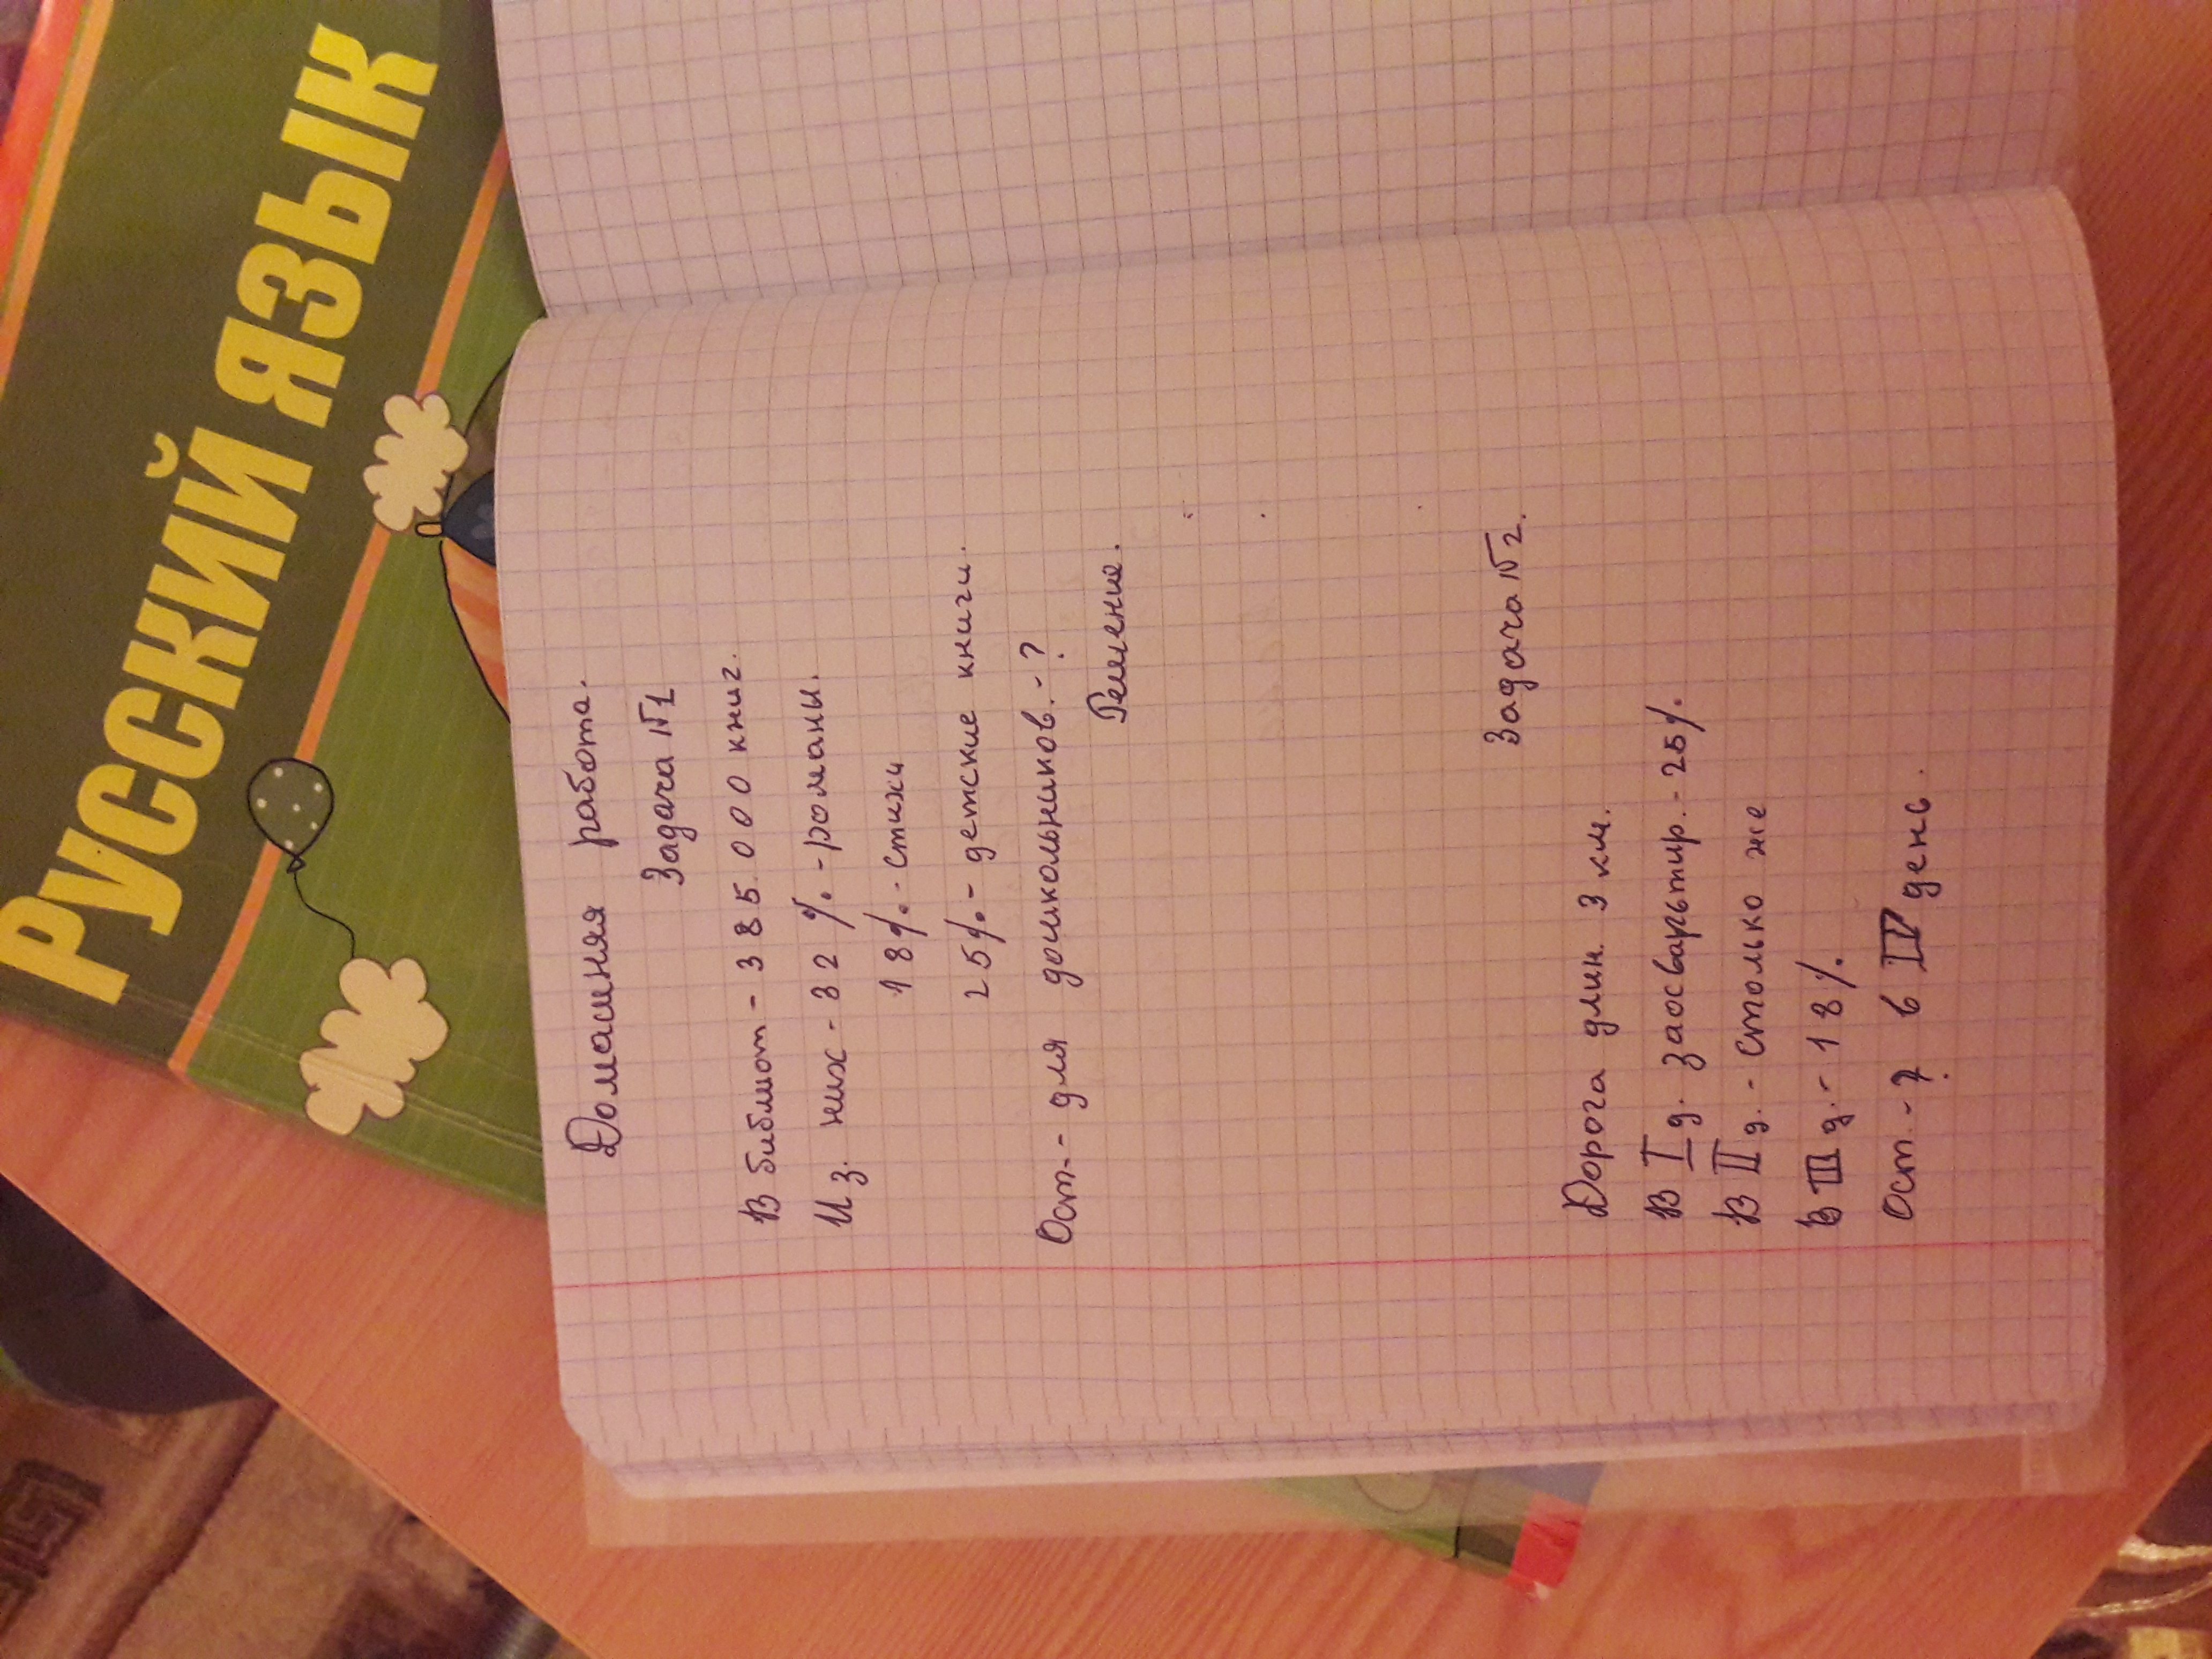 РУССКИЙ ЯЗЫК
Домашняя работа.
Задача №1
В библиот - 385.000 книг.
Из. них - 32 %. - романы.
18%. - стихи
25%. - детские книги.
Ост- - для дошкольников. - ?
Решение.
Задача №2.
Дорога длин. 3 км.
В I д. заасвартир. - 25%.
В II д. - столько же
В III д. - 18%.
Ост. - ? в IV день.